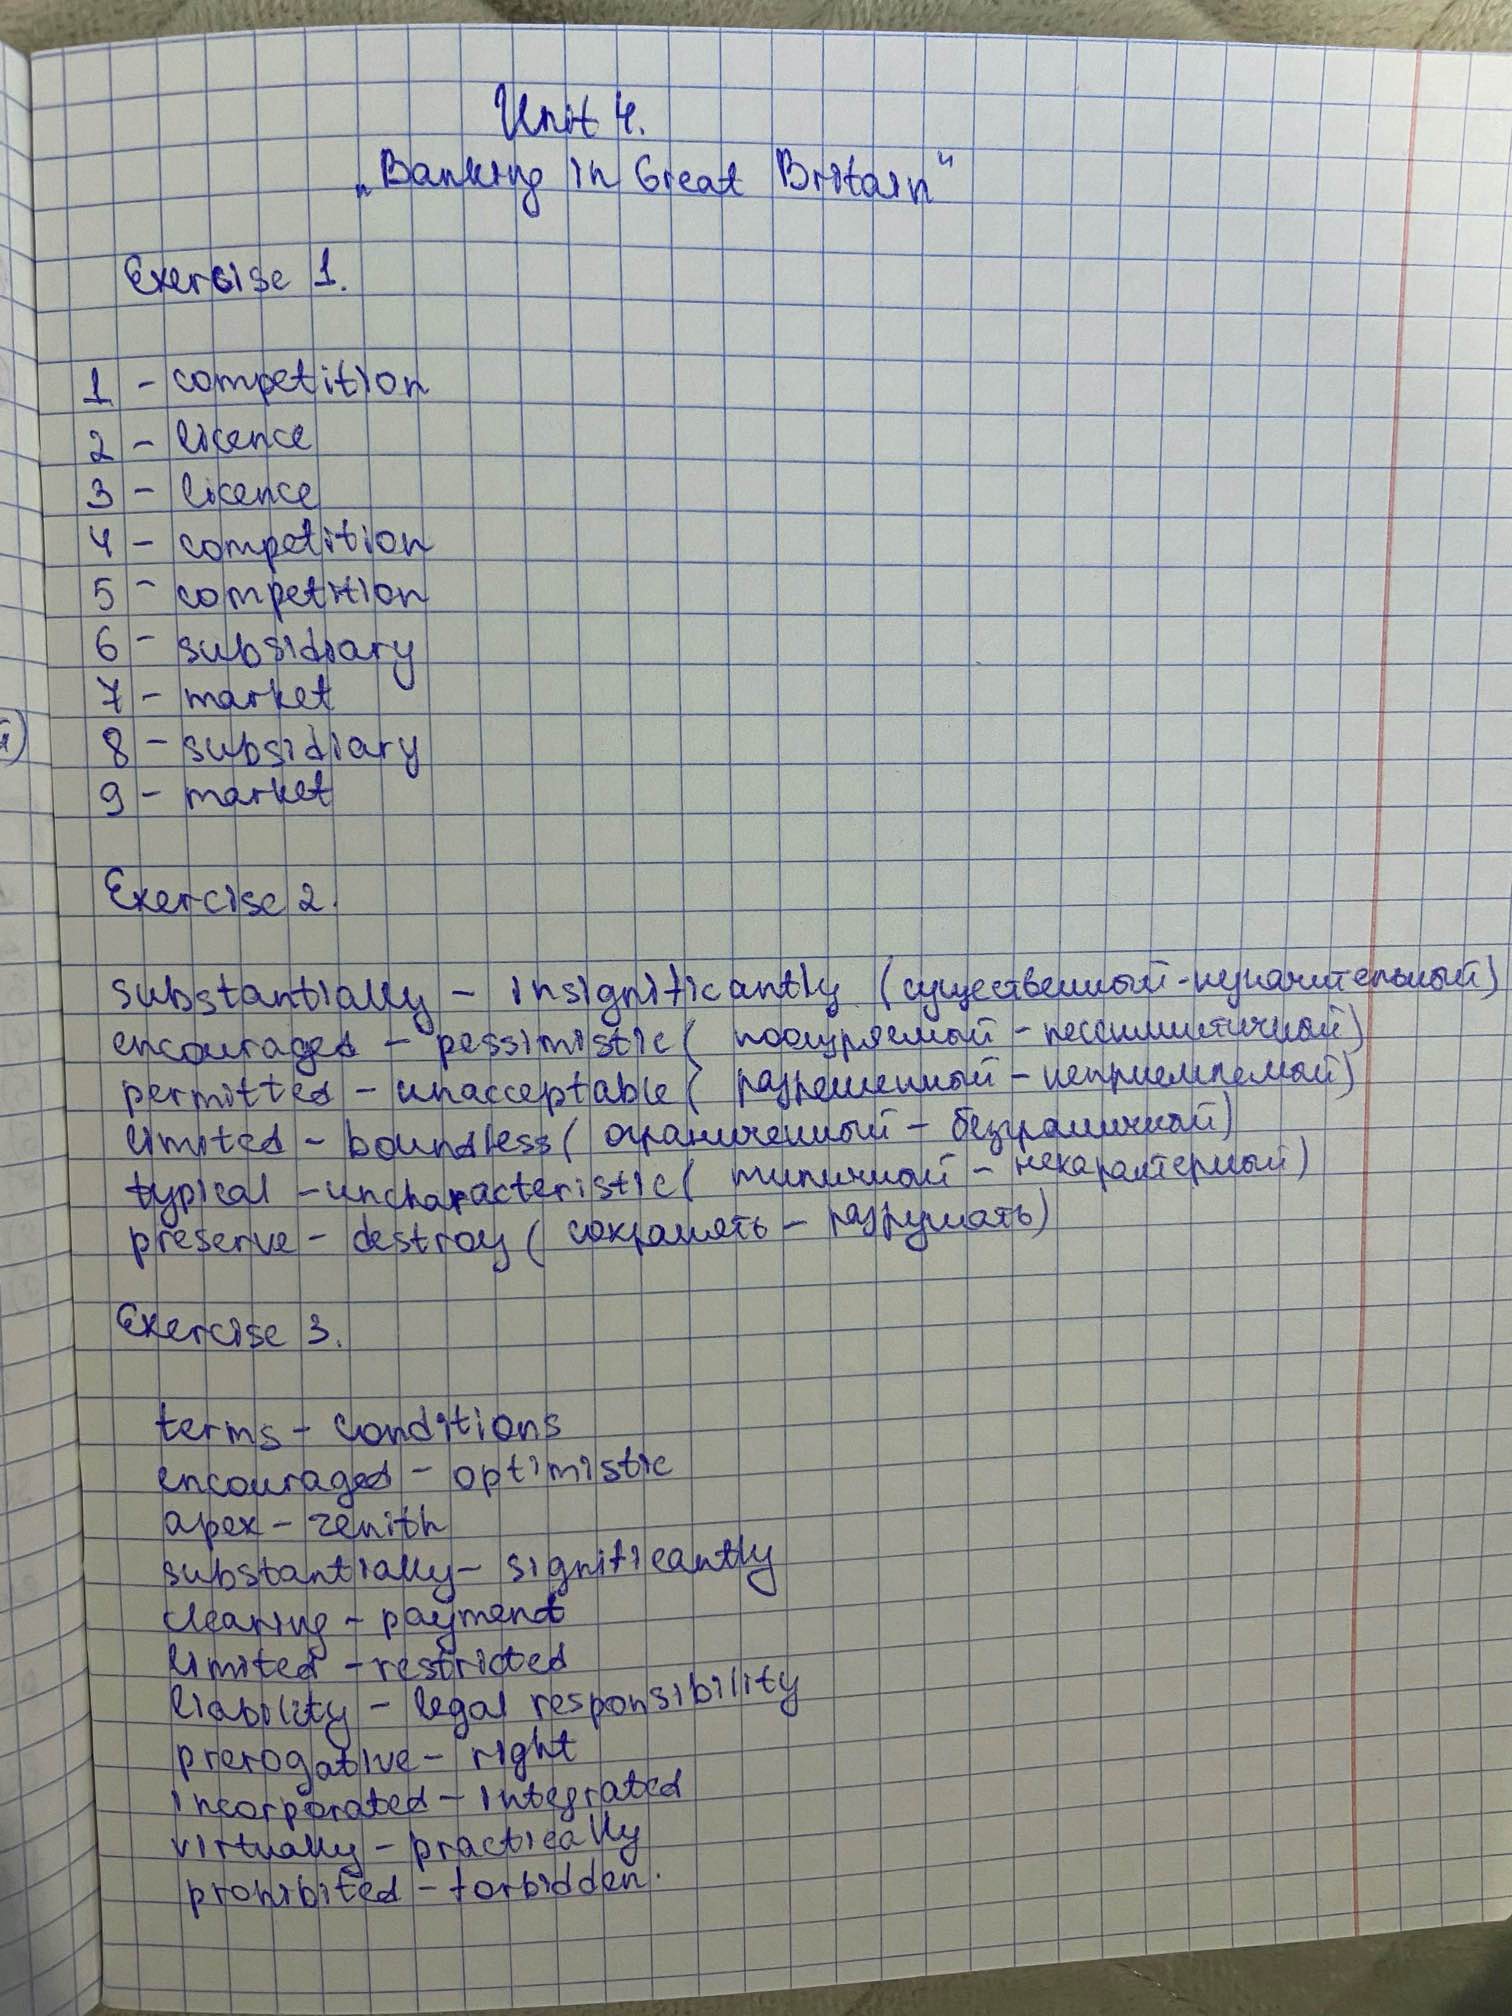 Unit 4.
„Banking in Great Britain"
Exercise 1.
1 - competition
2 - licence
3 - licence
4 - competition
5 - competition
6 - subsidiary
7 - market
8 - subsidiary
9 - market
Exercise 2.
substantially - insignificantly (существенный - незначительный)
encouraged - pessimistic ( поощряемый - пессимистичный)
permitted - unacceptable ( разрешенный - неприемлемый)
limited - boundless ( ограниченный - безграничный)
typical - uncharacteristic ( типичный - нехарактерный)
preserve - destroy ( сохранять - разрушать)
Exercise 3.
terms - conditions
encouraged - optimistic
apex - zenith
substantially - significantly
clearing - payment
limited - restricted
liability - legal responsibility
prerogative - right
incorporated - integrated
virtually - practically
prohibited - forbidden.